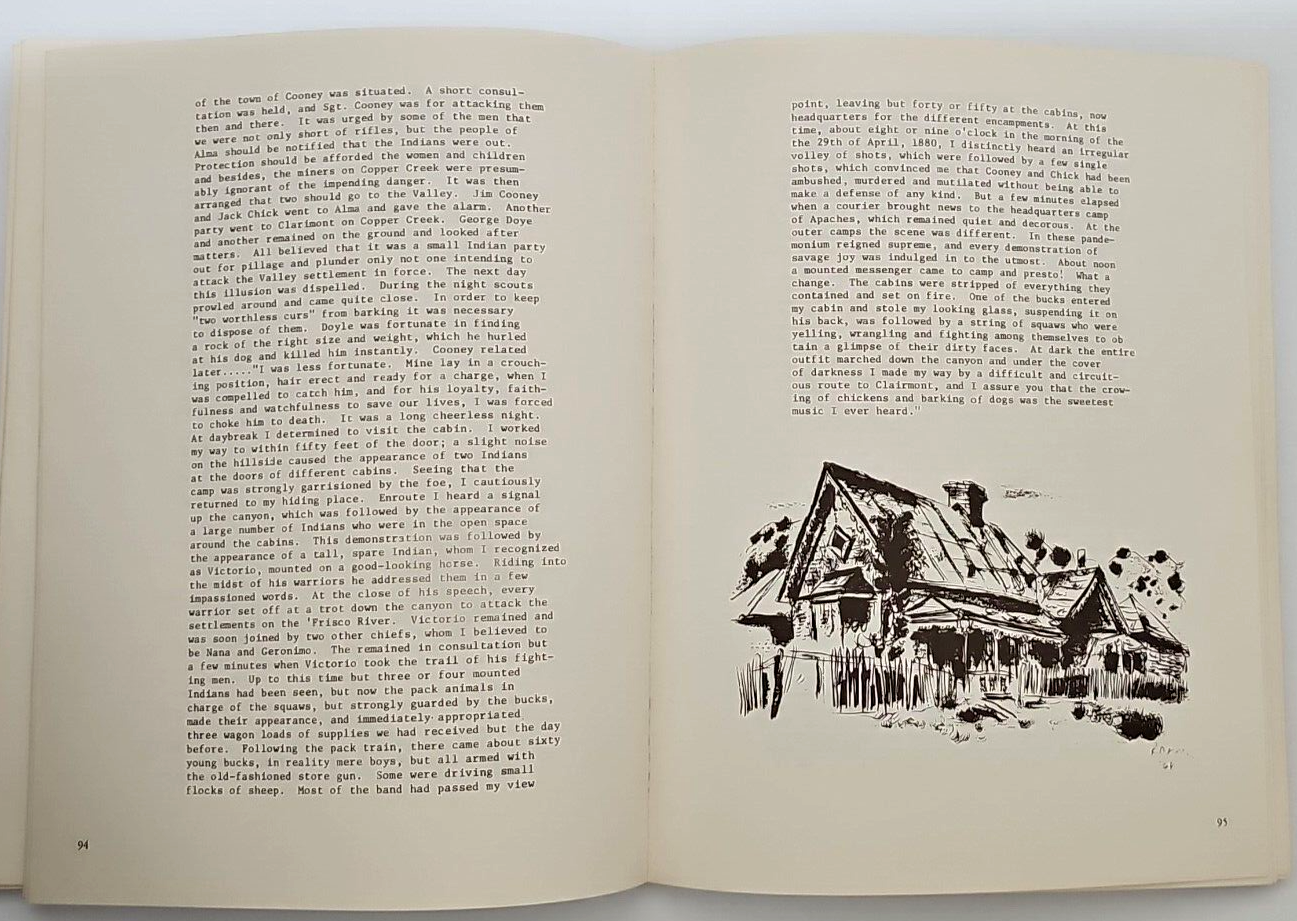 of the town of Cooney was situated. A short consul-
tation was held, and Sgt. Cooney was for attacking them
then and there. It was urged by some of the men that
we were not only short of rifles, but the people of
Alma should be notified that the Indians were out.
Protection should be afforded the women and children
and besides, the miners on Copper Creek were presum-
ably ignorant of the impending danger. It was then
arranged that two should go to the Valley. Jim Cooney
and Jack Chick went to Alma and gave the alarm. Another
party went to Clarimont on Copper Creek. George Doye
and another remained on the ground and looked after
matters. All believed that it was a small Indian party
out for pillage and plunder only not one intending to
attack the Valley settlement in force. The next day
this illusion was dispelled. During the night scouts
prowled around and came quite close. In order to keep
"two worthless curs" from barking it was necessary
to dispose of them. Doyle was fortunate in finding
a rock of the right size and weight, which he hurled
at his dog and killed him instantly. Cooney related
later....."I was less fortunate. Mine lay in a crouch-
ing position, hair erect and ready for a charge, when I
was compelled to catch him, and for his loyalty, faith-
fulness and watchfulness to save our lives, I was forced
to choke him to death. It was a long cheerless night.
At daybreak I determined to visit the cabin. I worked
my way to within fifty feet of the door; a slight noise
on the hillside caused the appearance of two Indians
at the doors of different cabins. Seeing that the
camp was strongly garrisioned by the foe, I cautiously
returned to my hiding place. Enroute I heard a signal
up the canyon, which was followed by the appearance of
a large number of Indians who were in the open space
around the cabins. This demonstration was followed by
the appearance of a tall, spare Indian, whom I recognized
as Victorio, mounted on a good-looking horse. Riding into
the midst of his warriors he addressed them in a few
impassioned words. At the close of his speech, every
warrior set off at a trot down the canyon to attack the
settlements on the 'Frisco River. Victorio remained and
was soon joined by two other chiefs, whom I believed to
be Nana and Geronimo. The remained in consultation but
a few minutes when Victorio took the trail of his fight-
ing men. Up to this time but three or four mounted
Indians had been seen, but now the pack animals in
charge of the squaws, but strongly guarded by the bucks,
made their appearance, and immediately appropriated
three wagon loads of supplies we had received but the day
before. Following the pack train, there came about sixty
young bucks, in reality mere boys, but all armed with
the old-fashioned store gun. Some were driving small
flocks of sheep. Most of the band had passed my view
94
point, leaving but forty or fifty at the cabins, now
headquarters for the different encampments. At this
time, about eight or nine o'clock in the morning of the
the 29th of April, 1880, I distinctly heard an irregular
volley of shots, which were followed by a few single
shots, which convinced me that Cooney and Chick had been
ambushed, murdered and mutilated without being able to
make a defense of any kind. But a few minutes elapsed
when a courier brought news to the headquarters camp
of Apaches, which remained quiet and decorous. At the
outer camps the scene was different. In these pande-
monium reigned supreme, and every demonstration of
savage joy was indulged in to the utmost. About noon
a mounted messenger came to camp and presto! What a
change. The cabins were stripped of everything they
contained and set on fire. One of the bucks entered
my cabin and stole my looking glass, suspending it on
his back, was followed by a string of squaws who were
yelling, wrangling and fighting among themselves to ob
tain a glimpse of their dirty faces. At dark the entire
outfit marched down the canyon and under the cover
of darkness I made my way by a difficult and circuit-
ous route to Clairmont, and I assure you that the crow-
ing of chickens and barking of dogs was the sweetest
music I ever heard."
95